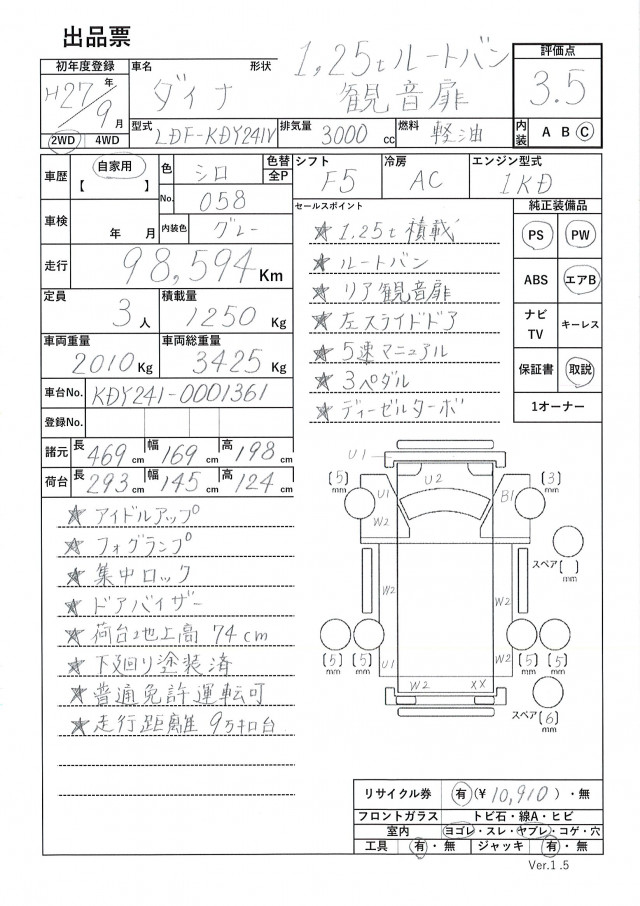 出品票
初年度登録
H27年
9月
車名 ダイナ
形状 1,25tルートバン
観音扉
評価点
3.5
2WD 4WD
型式 LDF-KDY241V
排気量 3000cc
燃料 軽油
内装 A B C
車歴 自家用
【 】
色 シロ
色替
全P
No. 058
シフト F5
冷房 AC
エンジン型式 1KD
車検 年 月
内装色 グレー
セールスポイント
純正装備品
★1.25t積載
PS PW
走行 98,594Km
★ルートバン
★リア観音扉
ABS エアB
定員 3人
積載量 1250Kg
★左スライドドア
ナビ
TV
キーレス
車両重量 2010Kg
車両総重量 3425Kg
★5速マニュアル
★3ペダル
保証書 取説
車台No. KDY241-0001361
★ディーゼルターボ
1オーナー
登録No.
諸元 長469cm 幅169cm 高198cm
荷台 長293cm 幅145cm 高124cm
★アイドルアップ
★フォグランプ
★集中ロック
★ドアバイザー
★荷台地上高 74cm
★下廻り塗装済
★普通免許運転可
★走行距離 9万キロ台
U1
(5)
mm
U1
U2
B1
(3)
mm
W2
スペア( )
mm
W2
W2
W2
(5)
mm
(5)
mm
U1
W2
(5)
mm
(5)
mm
W2
XX
スペア(6)
mm
リサイクル券 有(¥10,910)・無
フロントガラス トビ石・線A・ヒビ
室内 ヨゴレ・スレ・ヤブレ・コゲ・穴
工具 有・無 ジャッキ 有・無
Ver.1.5